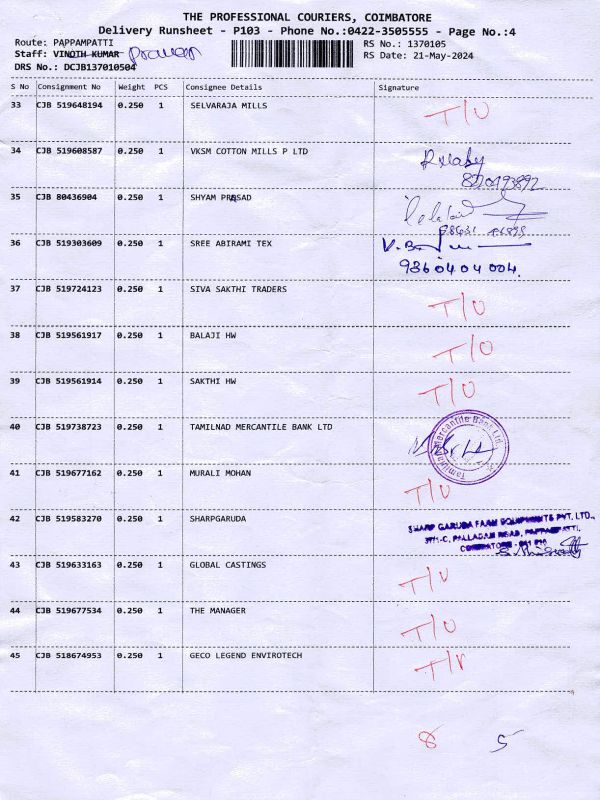 THE PROFESSIONAL COURIERS, COIMBATORE
Delivery Runsheet - P103 - Phone No.:0422-3505555 - Page No.:4
Route: PAPPAMPATTI RS No.: 1370105
Staff: VINOTH KUMAR RS Date: 21-May-2024
DRS No.: DCJB137010504
S No Consignment No Weight PCS Consignee Details Signature
33 CJB 519648194 0.250 1 SELVARAJA MILLS T/U
34 CJB 519608587 0.250 1 VKSM COTTON MILLS P LTD
35 CJB 80436904 0.250 1 SHYAM PRASAD
36 CJB 519303609 0.250 1 SREE ABIRAMI TEX
9360404004.
37 CJB 519724123 0.250 1 SIVA SAKTHI TRADERS T/U
38 CJB 519561917 0.250 1 BALAJI HW T/U
39 CJB 519561914 0.250 1 SAKTHI HW T/U
40 CJB 519738723 0.250 1 TAMILNAD MERCANTILE BANK LTD Tamilnad Mercantile Bank Ltd.
41 CJB 519677162 0.250 1 MURALI MOHAN T/U
42 CJB 519583270 0.250 1 SHARPGARUDA SHARP GARUDA FARM EQUIPMENTS PVT. LTD.,
PALLADAM ROAD, PAPPAMPATTI,
COIMBATORE
43 CJB 519633163 0.250 1 GLOBAL CASTINGS T/U
44 CJB 519677534 0.250 1 THE MANAGER T/U
45 CJB 518674953 0.250 1 GECO LEGEND ENVIROTECH T/r
8 5